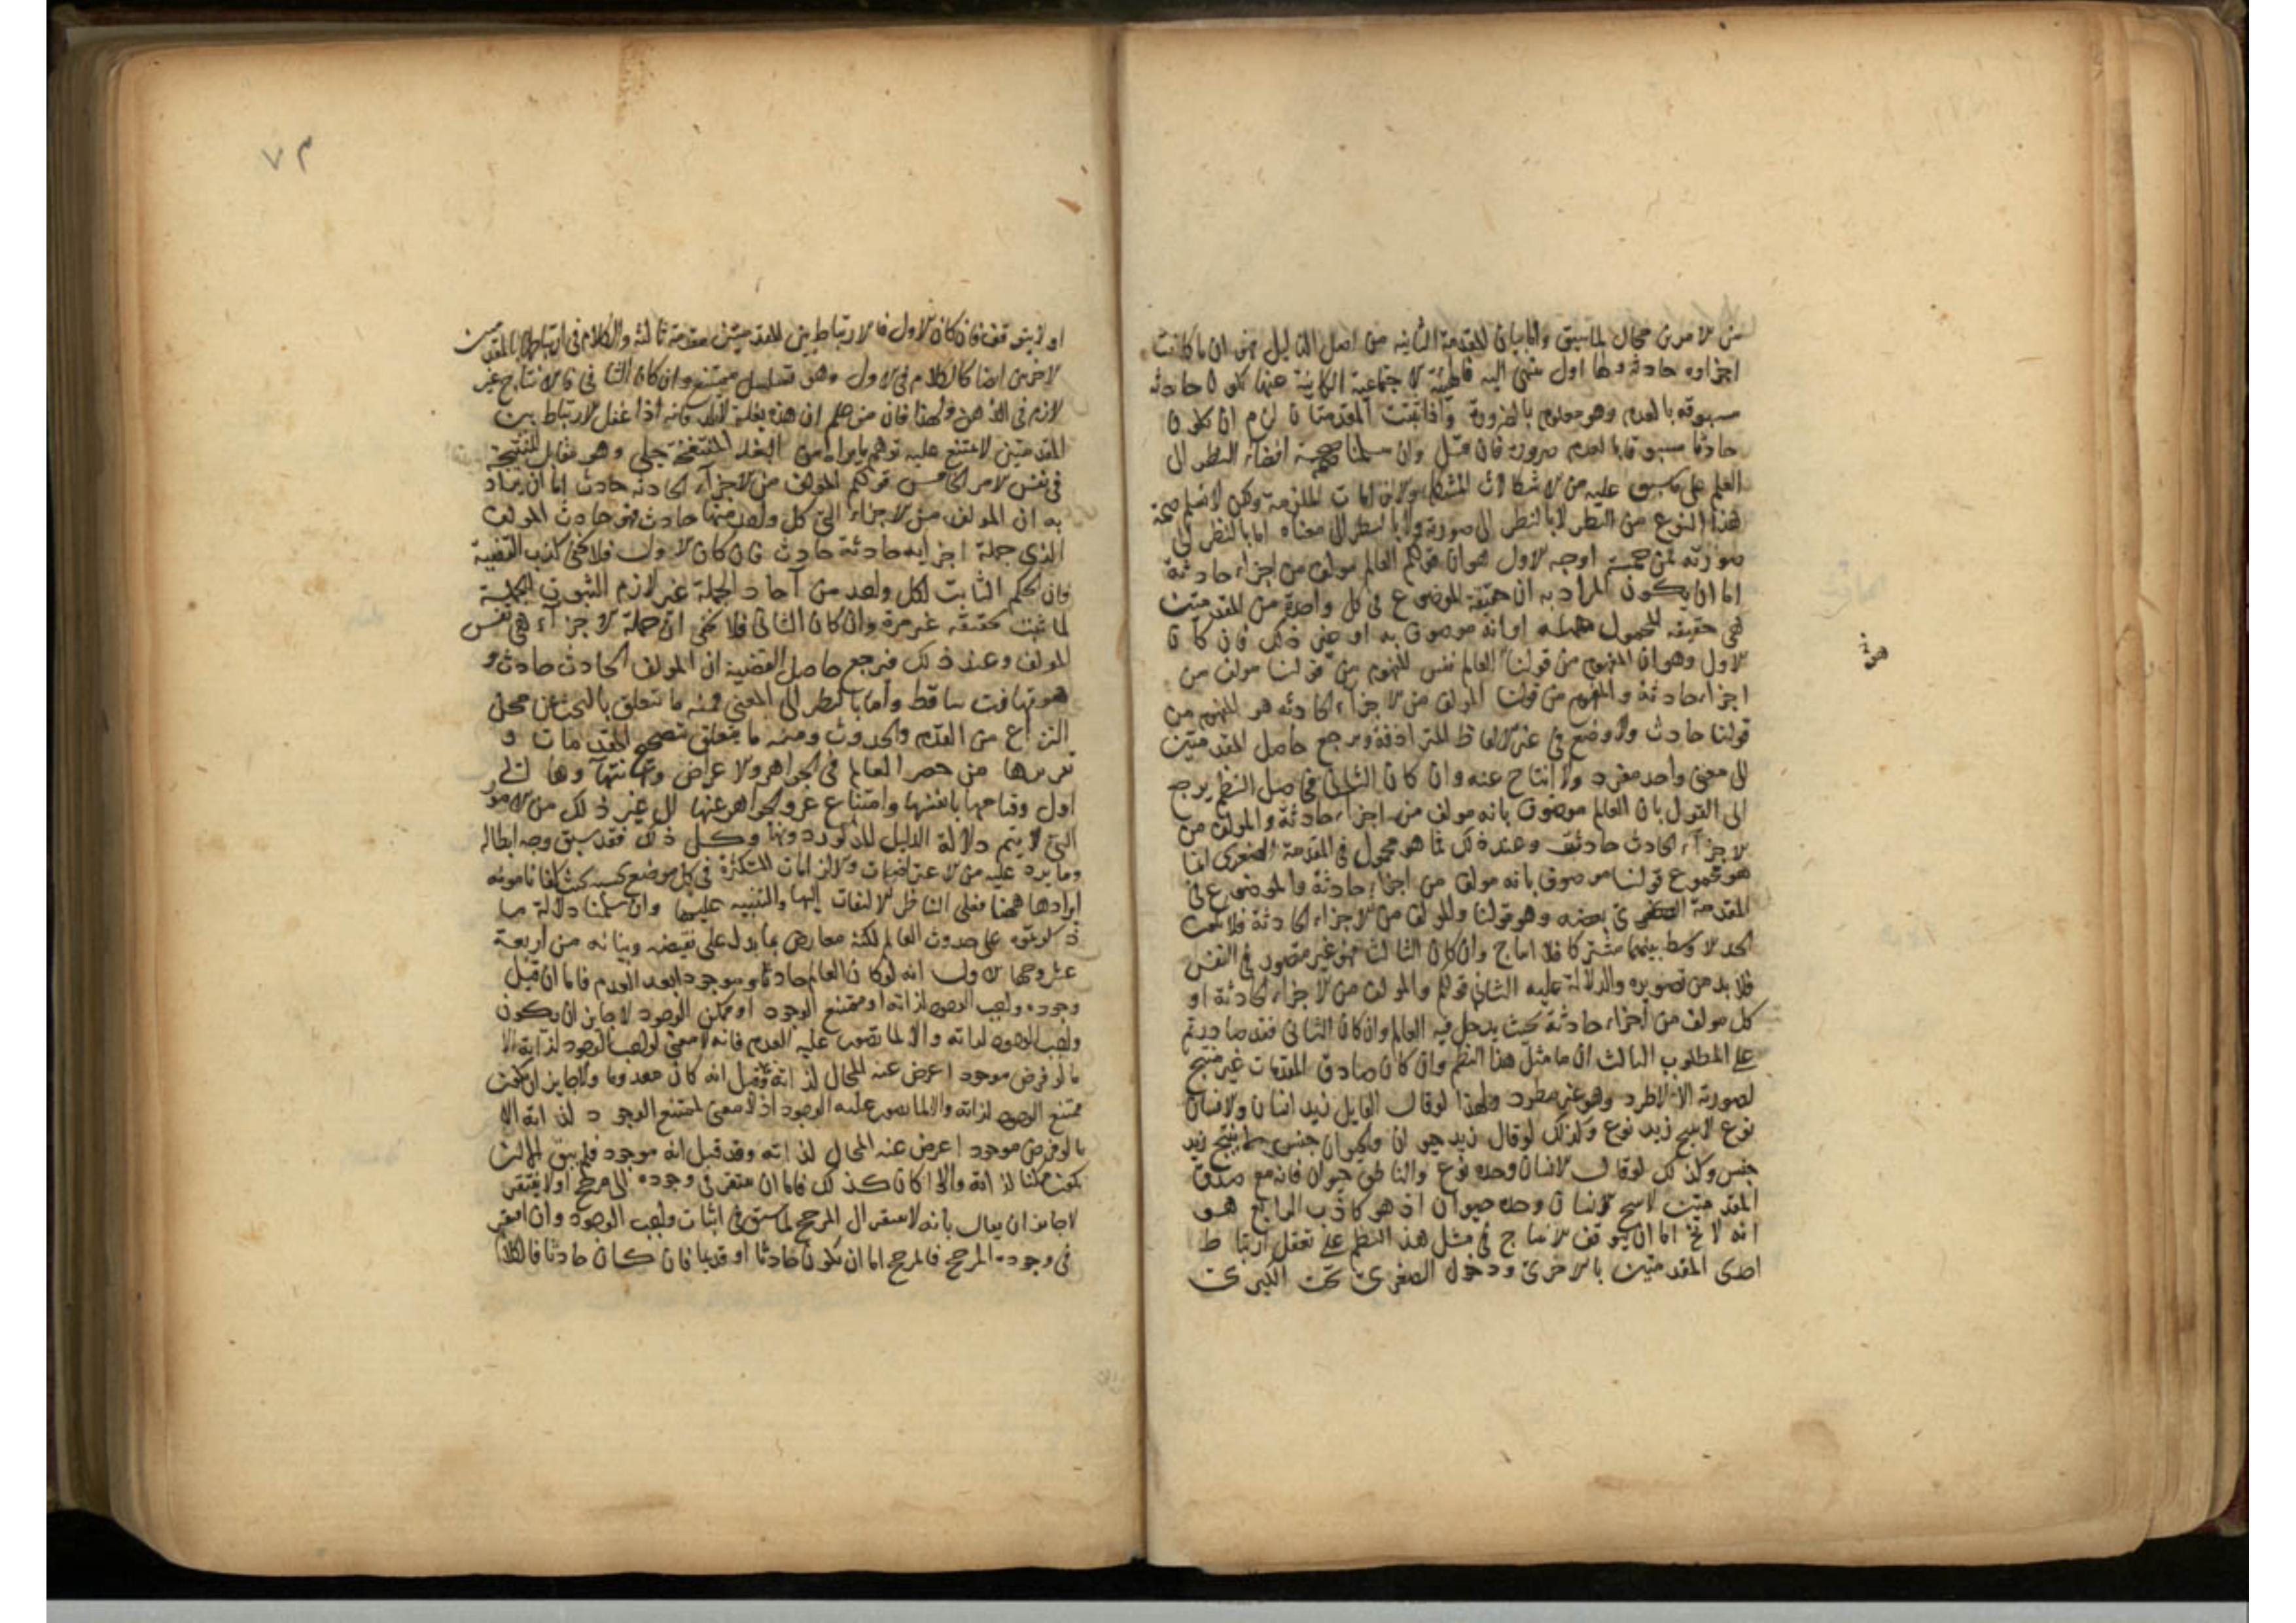 من الامرين محال لما سبق واما بيان المقدمة الثانيه من اصل الدليل فهو ان ما كانت
اجزاوه حادثة ولها اول تنتهى اليه فالهيئة الاجتماعية الكاينة عنها تكون حادثة
مسبوقه بالعدم وهو معلوم بالضرورة واذا ثبتت المقدمتان لزم ان يكون
حادثا مسبوقا بالعدم ضرورة فان قيل وان سلمنا صحة افضاء النظر الى
العلم على ما سبق عليه من الاشكالات المشكلة والالزامات الملزمة ولكن لا نسلم صحة
هذا النوع من النظر لا بالنظر الى صورته ولا بالنظر الى معناه اما بالنظر الى
صورته فمن خمسة اوجه الاول هو ان قولكم العالم مولف من اجزاء حادثة
اما ان يكون المراد به ان حقيقة الموضوع فى كل واحدة من المقدمتين
هى حقيقة المحمول او انه موصوف به او معنى ذلك فان كان
الاول وهو ان المفهوم من قولنا العالم نفس المفهوم من قولنا مولف من
اجزاء حادثة والمفهوم من قولنا المولف من الاجزاء الحادثه هو المفهوم من
قولنا حادث ولا وضع فى غير الالفاظ المترادفة ويرجع حاصل المقدمتين
الى معنى واحد مفرد ولا انتاج عنه وان كان الثانى فحاصل النظم يرجع
الى القول بان العالم موصوف بانه مولف من اجزاء حادثة والمولف من
الاجزاء الحادث حادثة وعند ذلك فما هو محمول فى المقدمة الصغرى انما
هو مجموع قولنا موصوف بانه مولف من اجزاء حادثة والموضوع فى
المقدمة الكبرى بعضه وهو قولنا والمولف من الاجزاء الحادثة فلا يكون
الحد الاوسط بينهما مشتركا فلا انتاج وان كان الثالث فهو غير مقصود فى النفس
فلا بد من تصويره والدلالة عليه الثانى قولكم والمولف من الاجزاء الحادثة او
كل مولف من اجزاء حادثة بحيث يدخل فيه العالم وان كان الثانى فقد صادرتم
على المطلوب الثالث ان ما مثل هذا النظم وان كان صادق المقدمات غير منتج
لصورته الا لاطرد وهو غير مطرد ولهذا لو قال القايل زيد انسان والانسان
نوع لا ينتج زيد نوع وكذلك لو قال زيد حيوان والحيوان جنس لا ينتج زيد
جنس وكذلك لو قال الانسان وحده نوع والناطق حيوان فانه مع صدق
المقدمتين لا ينتج الانسان وحده حيوان اذ هو كاذب الرابع هو
انه لا يخ اما ان يتوقف الانتاج فى مثل هذا النظم على تعقل ارتباط
احدى المقدمتين بالاخرى ودخول الصغرى تحت الكبرى
٧٣
او لا يتوقف فان كان الاول فالارتباط بين المقدمتين مقدمة ثالثه والكلام فى ارتباطها بالمقدمتين
الاخرين ايضا كالكلام فى الاول وهو تسلسل ممتنع وان كان الثانى فالانتاج غير
لازم فى الذهن ولهذا فان من علم ان هذه بغلة فانه اذا غفل الارتباط بين
المقدمتين لا يمتنع عليه توهم البغلة المنتفخة حبلى وهو مقابل للنتيجة
فى نفس الامر الخامس قولكم المولف من الاجزاء الحادثه حادث اما ان يراد
به ان المولف من الاجزاء التى كل واحد منها حادث فهو حادث المولف
الذى جملة اجزايه حادثة حادث فان كان الاول فلا يخفى كذب القضية
فان الحكم الثابت لكل واحد من آحاد الجملة غير لازم الثبوت للجملة
لما ثبت تحقيقه غير مرة وان كان الثانى فلا يخفى ان جملة الاجزاء هى نفس
المولف وعند ذلك فيرجع حاصل القضية ان المولف الحادث حادث و
هو تهافت ساقط واما بالنظر الى المعنى فمنه ما يتعلق بالبحث عن محل
النزاع من القدم والحدوث ومنه ما يتعلق بتصحيح المقدمات و
تقريرها من حصر العالم فى الجواهر والاعراض وانتهاوها الى
اول وقيامها بانفسها وامتناع عرو الجواهر عنها الى غير ذلك من الامور
التى لا يتم دلالة الدليل المذكور دونها وكل ذلك فقد سبق وجه ابطاله
وما يرد عليه من الاعتراضات والالزامات المتكثرة فى كل موضع بحسبه بحيث كفانا مونه
ايرادها ههنا فعلى الناظر الالتفات اليها والتنبيه عليها وان سلمنا دلالة ما
ذكرتموه على حدوث العالم لكنه معارض بما يدل على نقيضه وبيانه من اربعة
عشر وجها الاول انه لو كان العالم حادثا وموجودا بعد العدم فاما ان قبل
وجوده واجب الوجود لذاته او ممتنع الوجود او ممكن الوجود لا جايز ان يكون
واجب الوجود لذاته والا لما تصور عليه العدم فانه لا معنى لواجب الوجود لذاته الا
ما لو فرض موجود اعرض عنه المحال لذاته وقيل انه كان معدوما ولا جايز ان يكون
ممتنع الوجود لذاته والا لما تصور عليه الوجود اذ لا معنى لممتنع الوجود لذاته الا
ما لو فرض موجود اعرض عنه المحال لذاته وقد قيل انه موجود فلم يبق الا ان
يكون ممكنا لذاته واذا كان كذلك فاما ان يفتقر فى وجوده الى مرجح او لا يفتقر
لا جايز ان يقال بانه لا يفتقر الى المرجح لما سبق فى اثبات واجب الوجود وان افتقر
فى وجوده المرجح فالمرجح اما ان يكون حادثا او قديما فان كان حادثا فالكلام